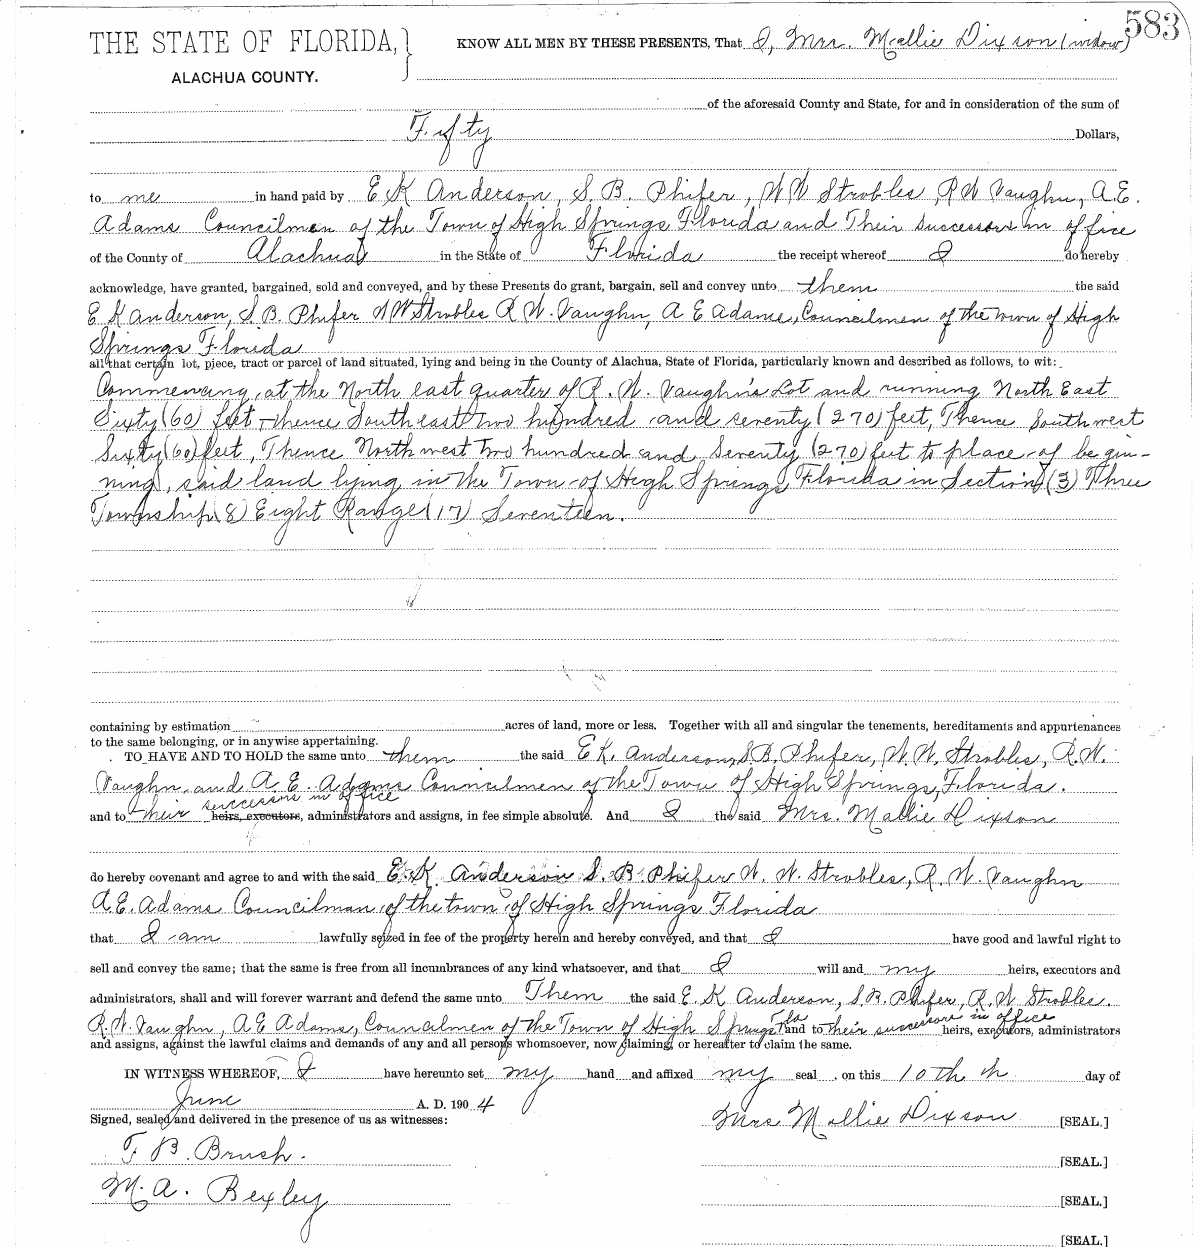 583
THE STATE OF FLORIDA, } KNOW ALL MEN BY THESE PRESENTS, That I, Mrs. Mallie Dixson (widow)
ALACHUA COUNTY.
of the aforesaid County and State, for and in consideration of the sum of
Fifty Dollars,
to me in hand paid by E K Anderson, S. B. Phifer, W W Strobles, R W Vaughn, A. E.
Adams Councilmen of the Town of High Springs Florida and Their successors in office
of the County of Alachua in the State of Florida the receipt whereof I do hereby
acknowledge, have granted, bargained, sold and conveyed, and by these Presents do grant, bargain, sell and convey unto them the said
E K Anderson, S. B. Phifer W W Strobles R. W. Vaughn, A E Adams, Councilmen of the town of High
Springs Florida
all that certain lot, piece, tract or parcel of land situated, lying and being in the County of Alachua, State of Florida, particularly known and described as follows, to wit:
Commencing at the North east quarter of R. W. Vaughn's Lot and running North East
Sixty (60) feet thence South east two hundred and seventy (270) feet, Thence Southwest
Sixty (60) feet, Thence North west two hundred and Seventy (270) feet to place of begin-
ning, said land lying in the Town of High Springs Florida in Section (3) Three
Township (8) Eight Range (17) Seventeen.
containing by estimation acres of land, more or less. Together with all and singular the tenements, hereditaments and appurtenances
to the same belonging, or in anywise appertaining.
TO HAVE AND TO HOLD the same unto them the said E K. Anderson, S. B. Phifer, W. W. Strobles, R. W.
Vaughn and A. E. Adams Councilmen of the Town of High Springs, Florida.
successors in office
and to their heirs, executors, administrators and assigns, in fee simple absolute. And I the said Mrs. Mallie Dixson
do hereby covenant and agree to and with the said E. K. Anderson S. B. Phifer W. W. Strobles, R. W. Vaughn
A. E. Adams Councilman of the town of High Springs Florida
that I am lawfully seized in fee of the property herein and hereby conveyed, and that I have good and lawful right to
sell and convey the same; that the same is free from all incumbrances of any kind whatsoever, and that I will and my heirs, executors and
administrators, shall and will forever warrant and defend the same unto Them the said E. K Anderson, S. B. Phifer, R. W Strobles.
R. W. Vaughn, A E Adams, Councilmen of the Town of High Springs Fla and to their successors in office heirs, executors, administrators
and assigns, against the lawful claims and demands of any and all persons whomsoever, now claiming, or hereafter to claim the same.
IN WITNESS WHEREOF, I have hereunto set my hand and affixed my seal , on this 10th day of
June A. D. 1904
Signed, sealed and delivered in the presence of us as witnesses: Mrs Mollie Dixson [SEAL.]
F B. Brush. [SEAL.]
M. A. Bexley [SEAL.]
[SEAL.]